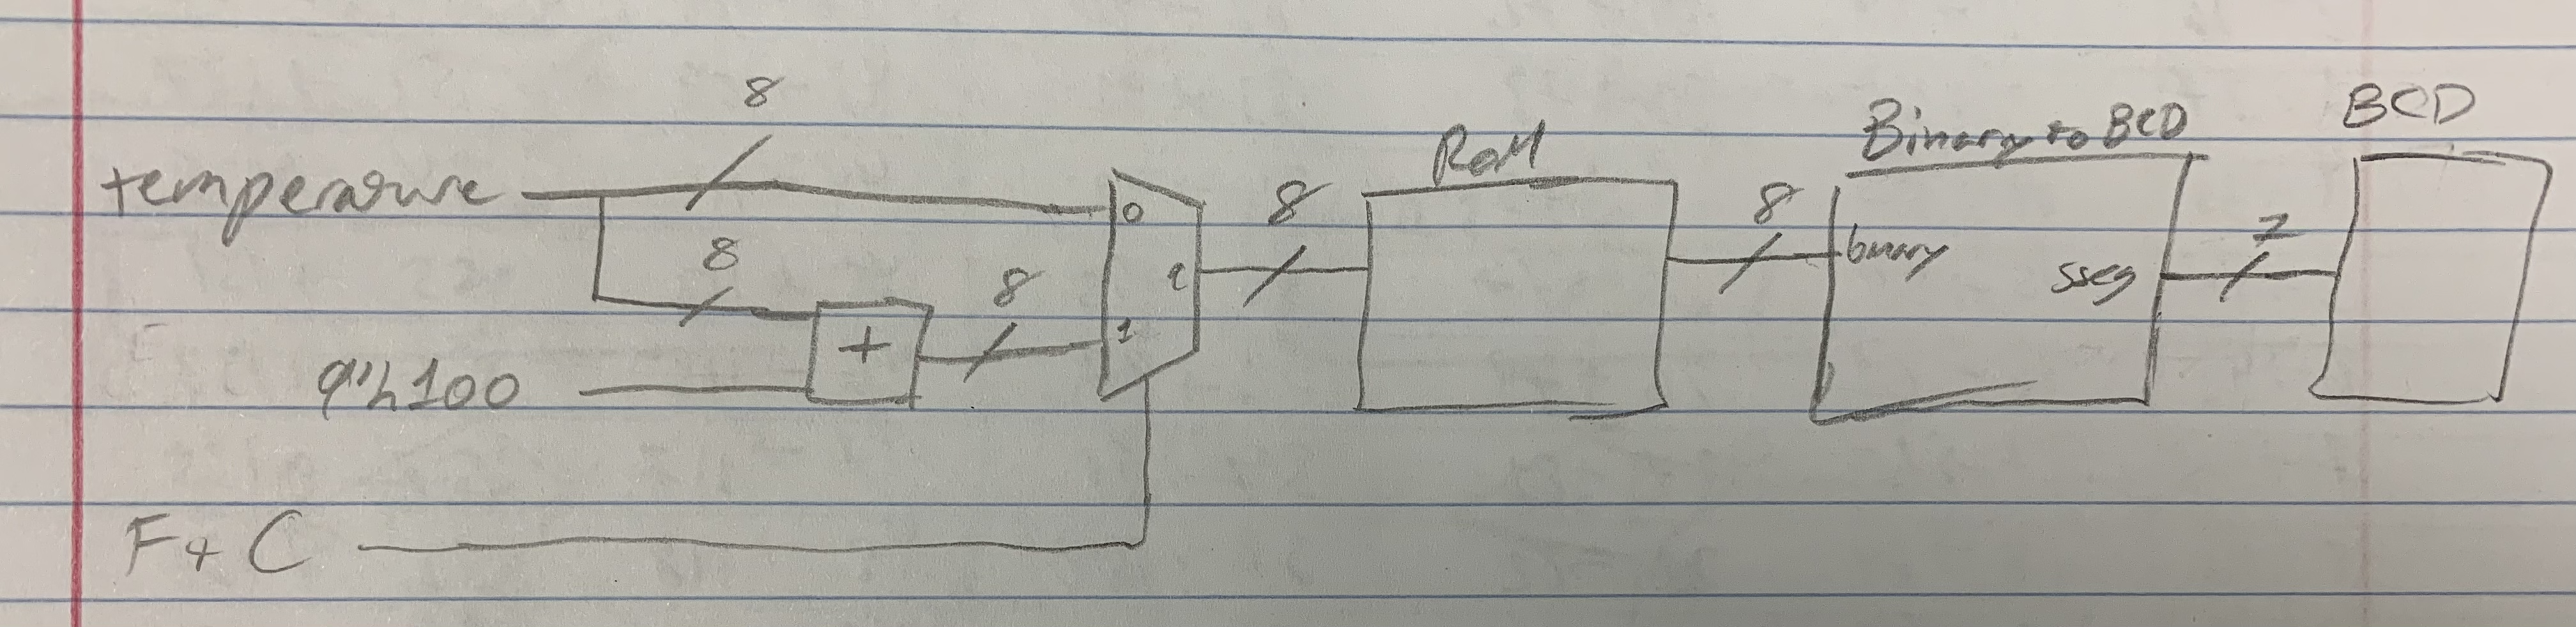 8
temperature
8
8
9'h100
+
0
1
8
ROM
8
Binary to BCD
binary
sseg
7
BCD
F + C